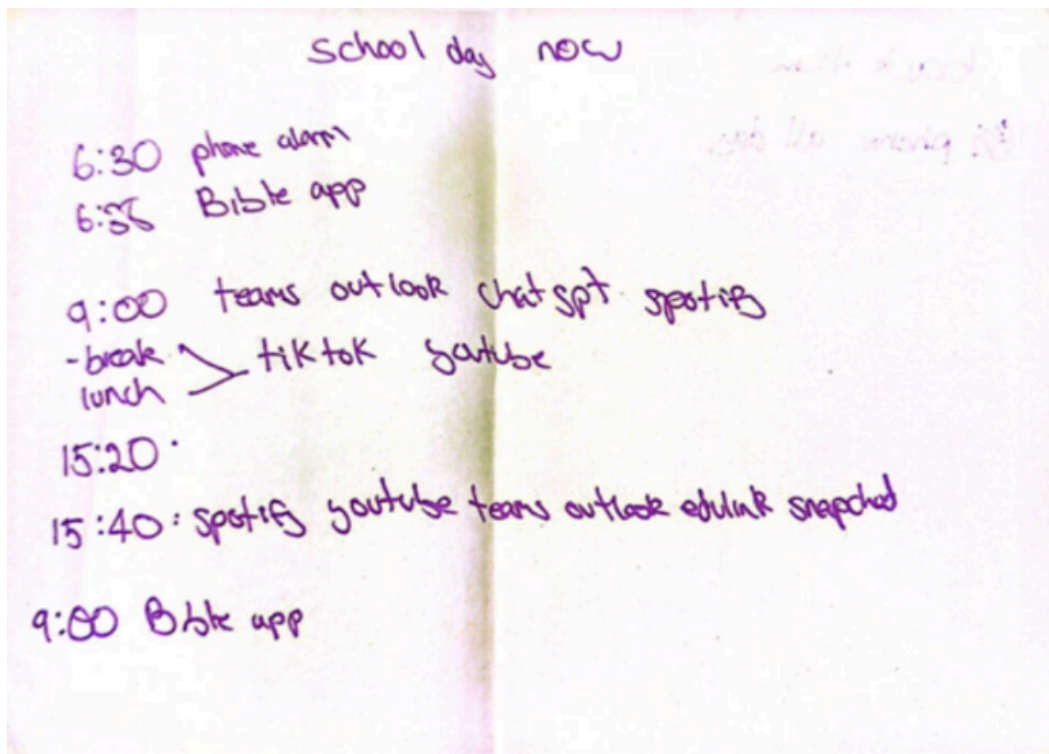 school day now
6:30 phone alarm
6:35 Bible app
9:00 teams outlook chatgpt spotify
-break
lunch
tiktok youtube
15:20
15:40: spotify youtube teams outlook edulink snapchat
9:00 Bible app
phone all day